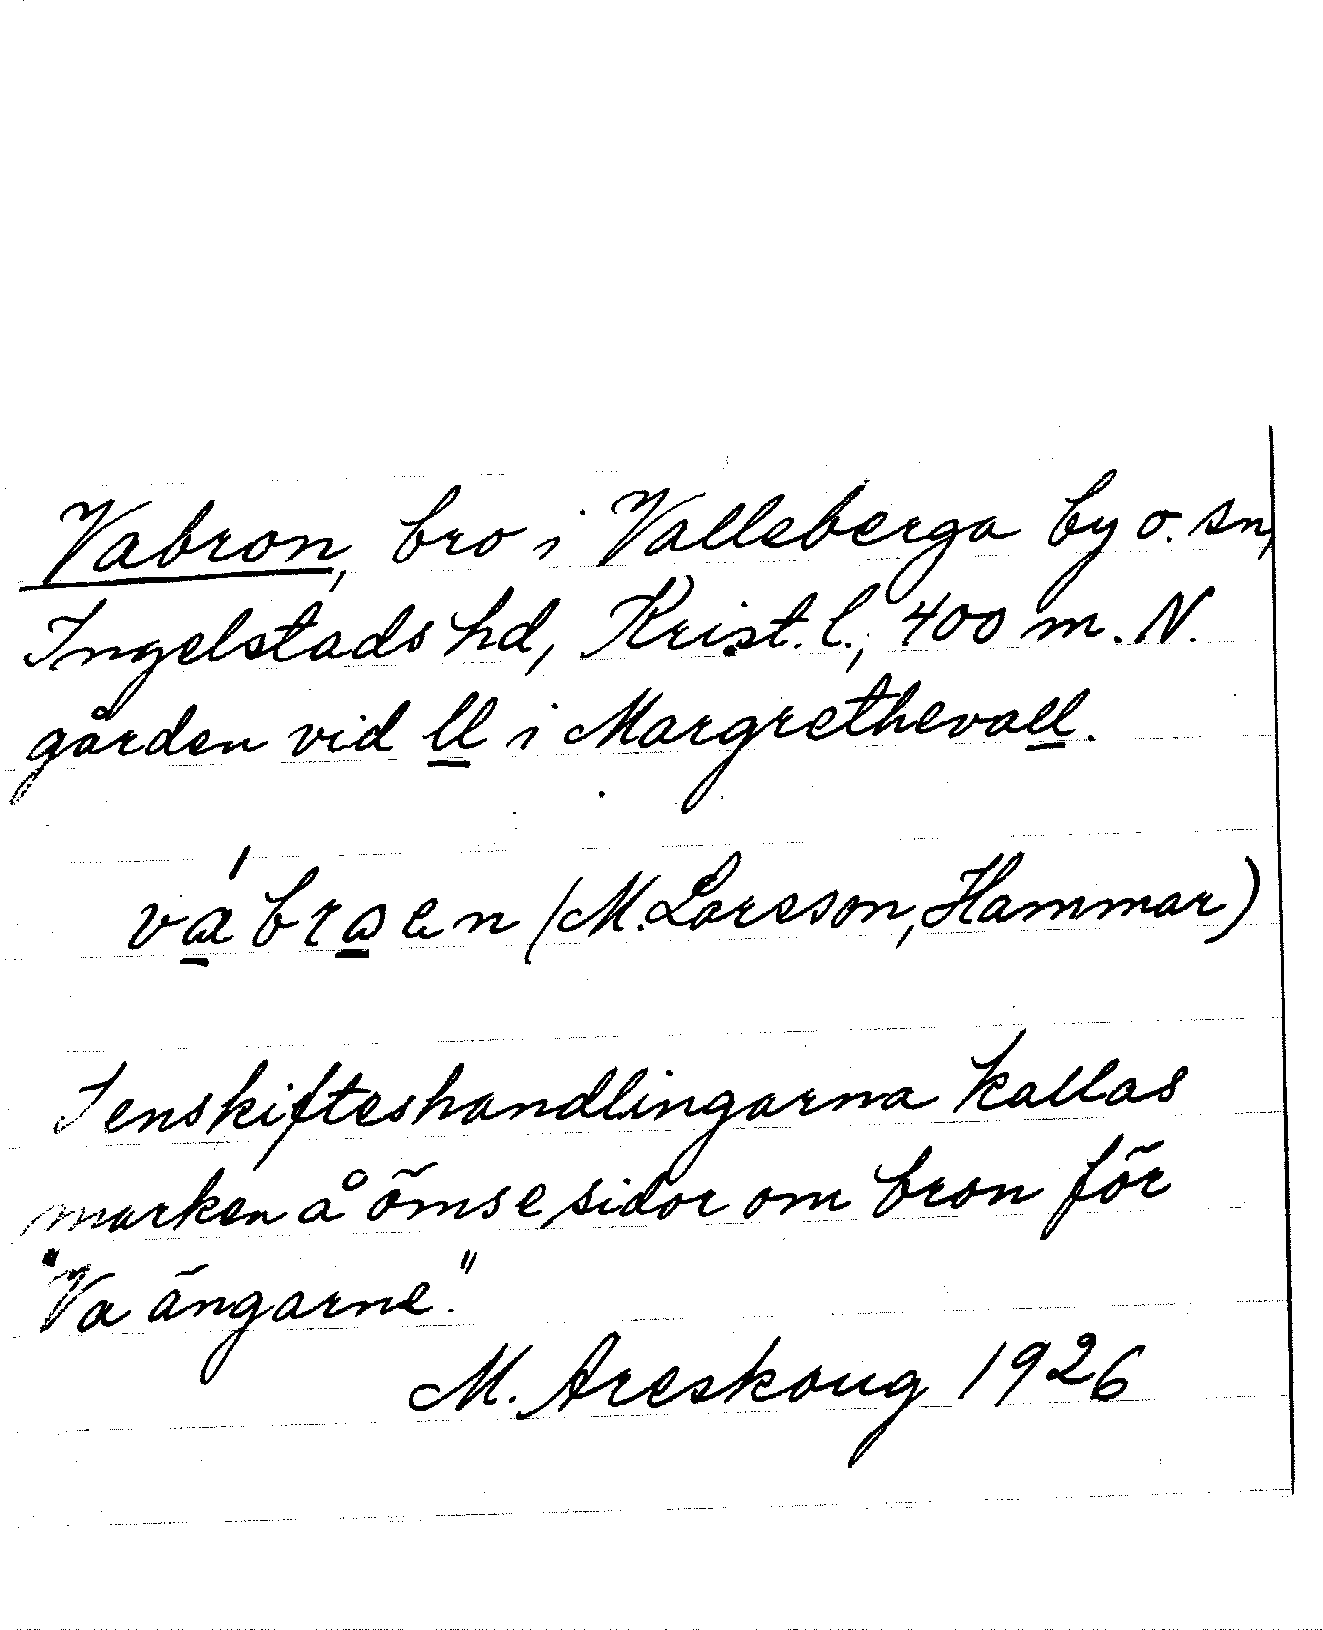 Vabron, bro i Valleberga by o. sn,
Ingelstads hd, Krist. l., 400 m. N.
gården vid ll i Margrethevall.
vabroen (M. Larsson, Hammar)
I enskifteshandlingarna kallas
marken å ömse sidor om bron för
"Va ängarne."
M. Areskoug 1926